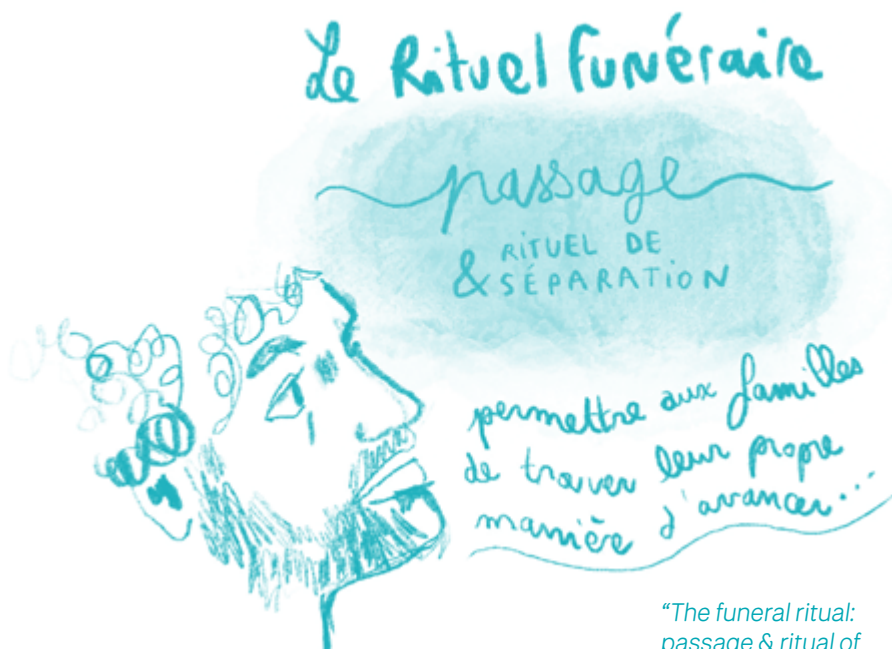 Le Rituel funéraire
passage
& RITUEL DE
SÉPARATION
permettre aux familles
de trouver leur propre
manière d'avancer...
“The funeral ritual:
passage & ritual of